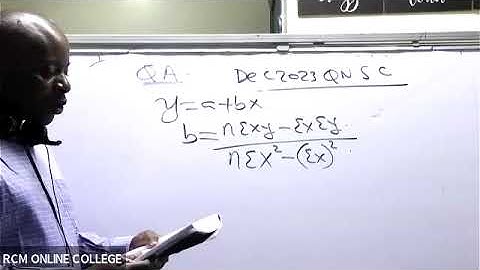 QA. Dec 2023 QN 5 C
y=a+bx
b= nΣxy-ΣxΣy
nΣx²-(Σx)²
RCM ONLINE COLLEGE